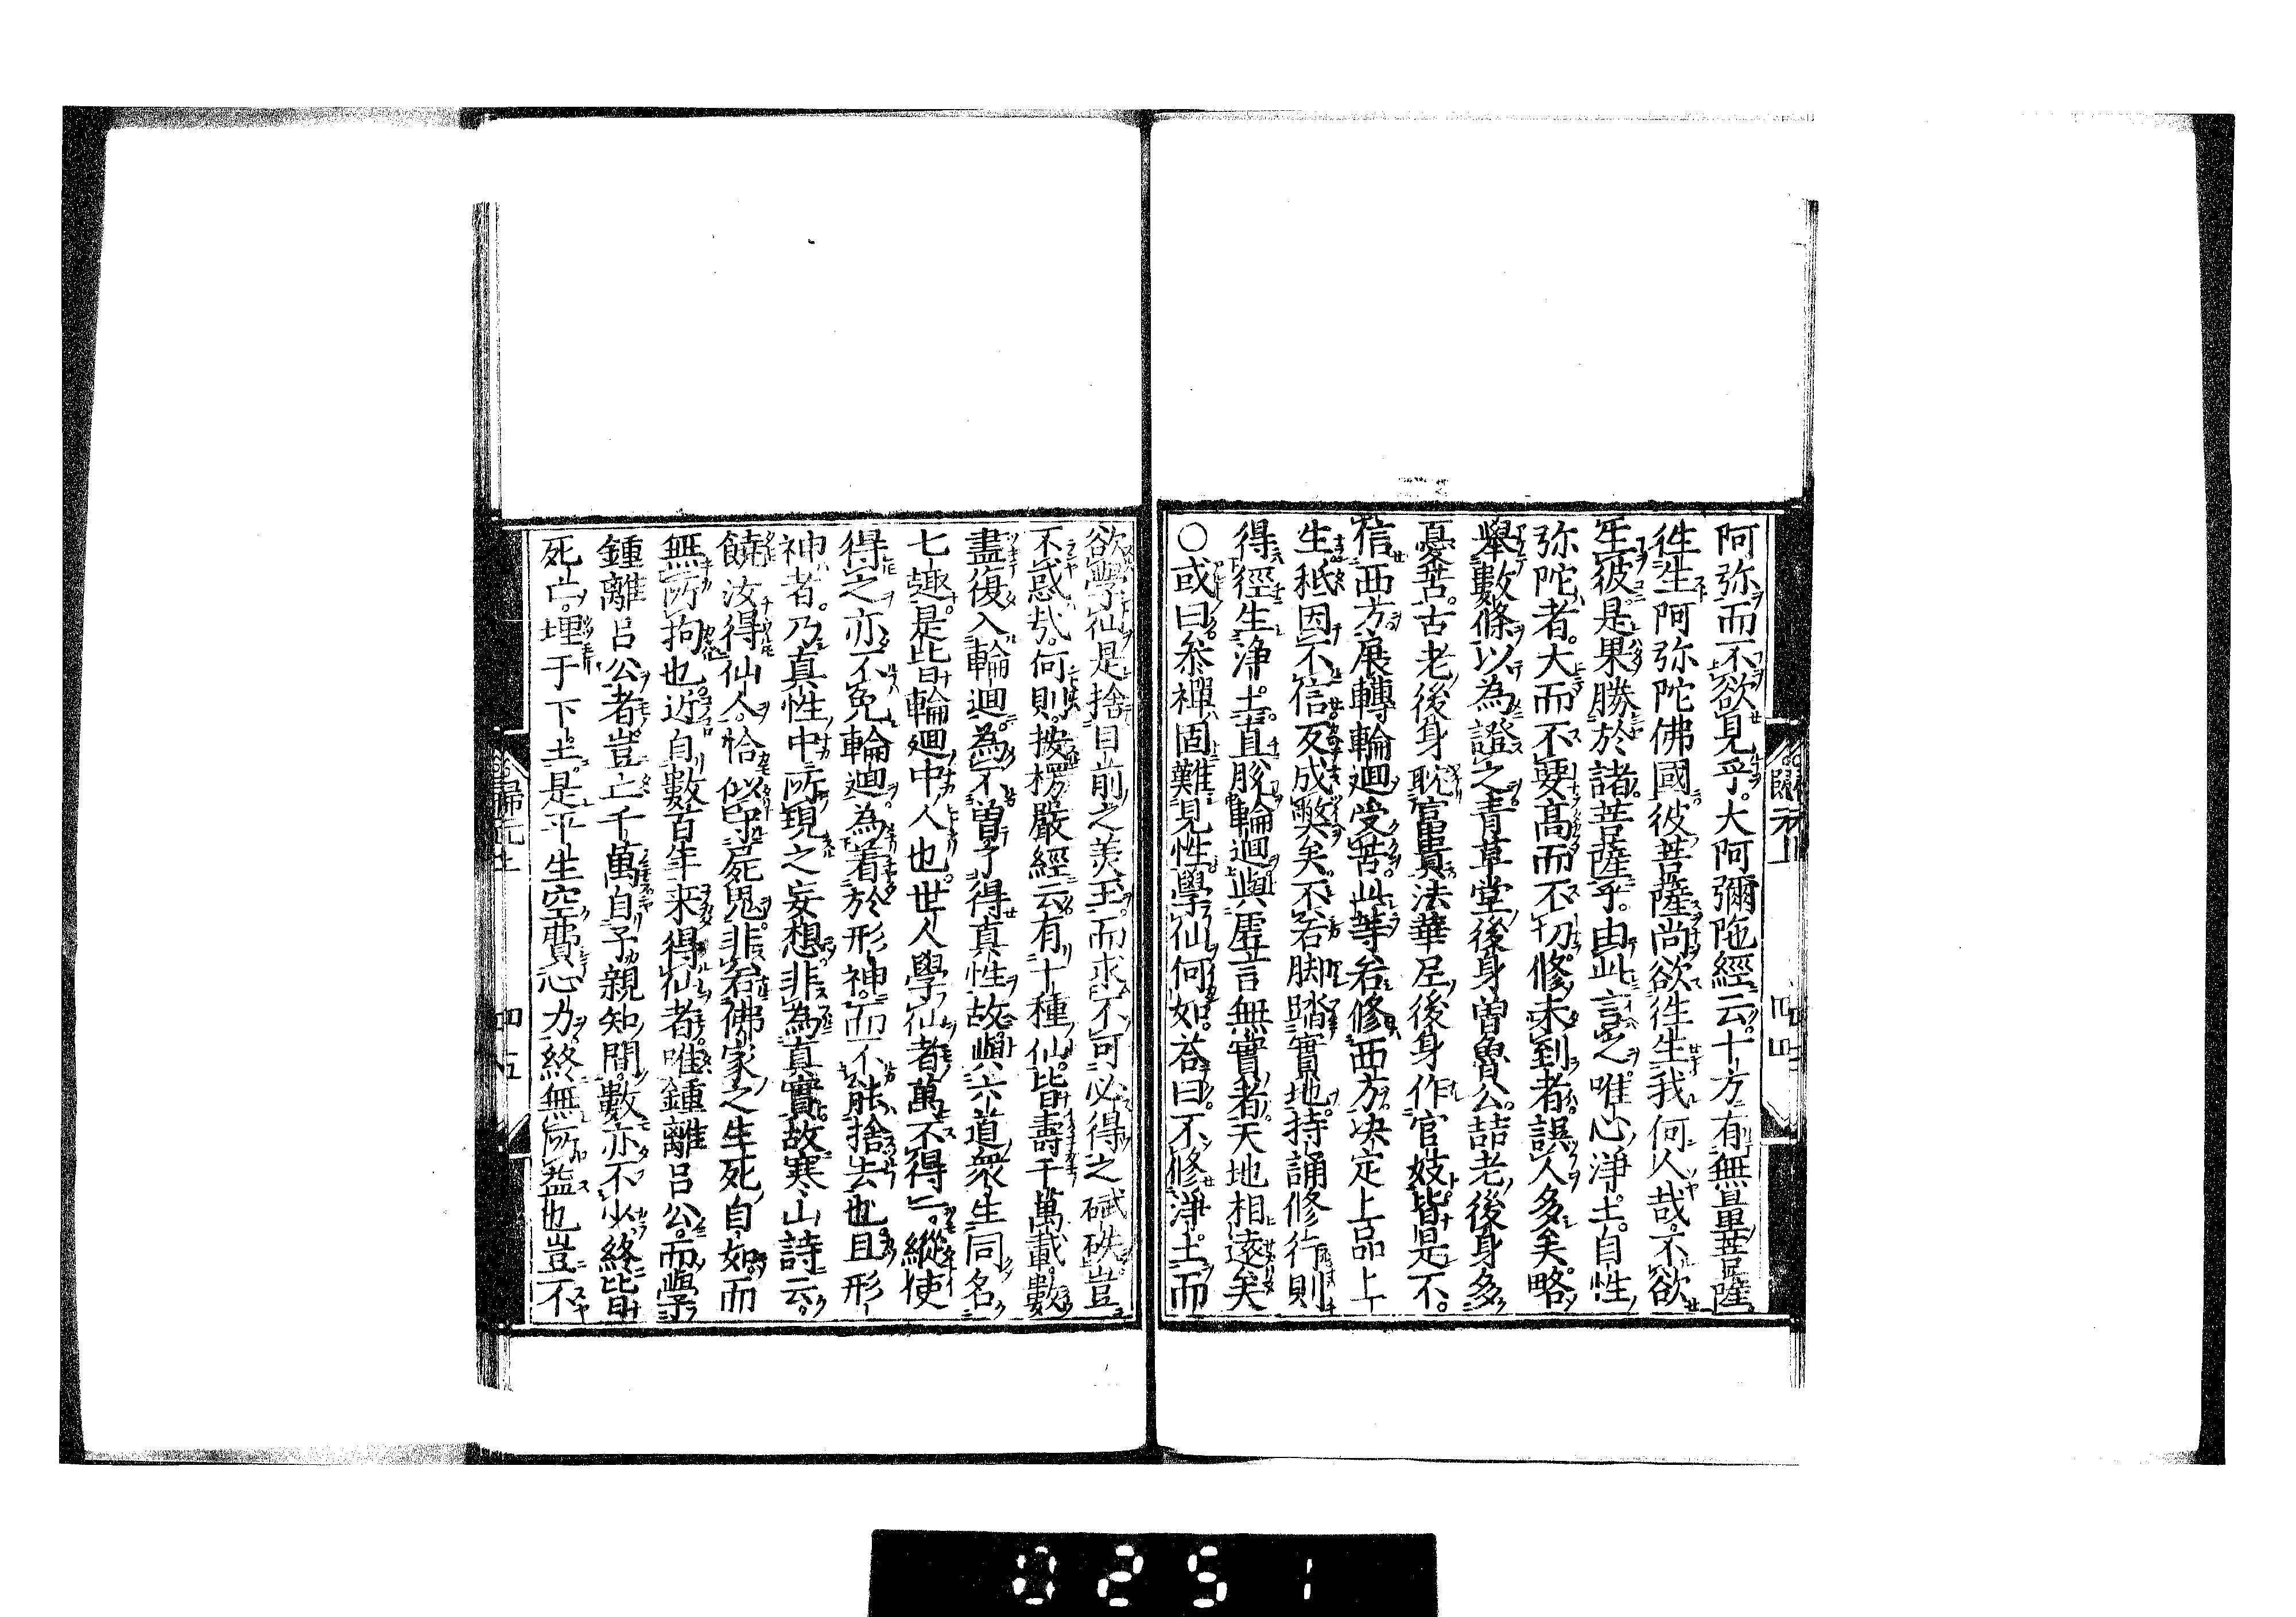 阿弥而不欲見乎。大阿彌陁經云。十方有無量菩薩
徃生阿弥陀佛國彼菩薩尚欲徃生我何人哉。不欲
生彼。是果勝於諸菩薩乎。由此言之。唯心淨土。自性
弥陀者。大而不要髙而不切。修未到者。誤人多矣。略
舉數條以為證之。青草堂後身曽魯公。喆老後身多
憂苦。古老後身耽富貴。法華尼後身作官妓。皆是不
信西方。展轉輪廻受苦。此等若修西方。决定上品上
生秪因不信反成弊矣。不若脚踏實地。持誦修行。則
得徑生淨土。直脫輪廻。與虚言無實者。天地相遠矣
○或曰。叅禪固難見性學仙何如。荅曰。不修淨土。而
欲學仙是捨目前之美玉。而求不可必得之碔砆。豈
不惑㢤。何則。按楞嚴經云有十種仙。皆壽千萬載。數
盡復入輪廻。為不曽了得真性故與六道衆生同名
七趣。是皆輪廻中人也。世人學仙者萬不得一。縱使
得之亦不免輪廻。為着於形神。而不能捨去也。且形
神者。乃真性中所現之妄想。非為真實。故寒山詩云。
饒汝得仙人。恰似守屍鬼。非若佛家之生死自如。而
無所拘也近自數百年来得仙者。唯鍾離呂公。而學
鍾離呂公者。豈止千萬自予親知間。數亦不少。終皆
死亡。埋于下土。是平生空費心力。終無所益也豈不
歸元
四五